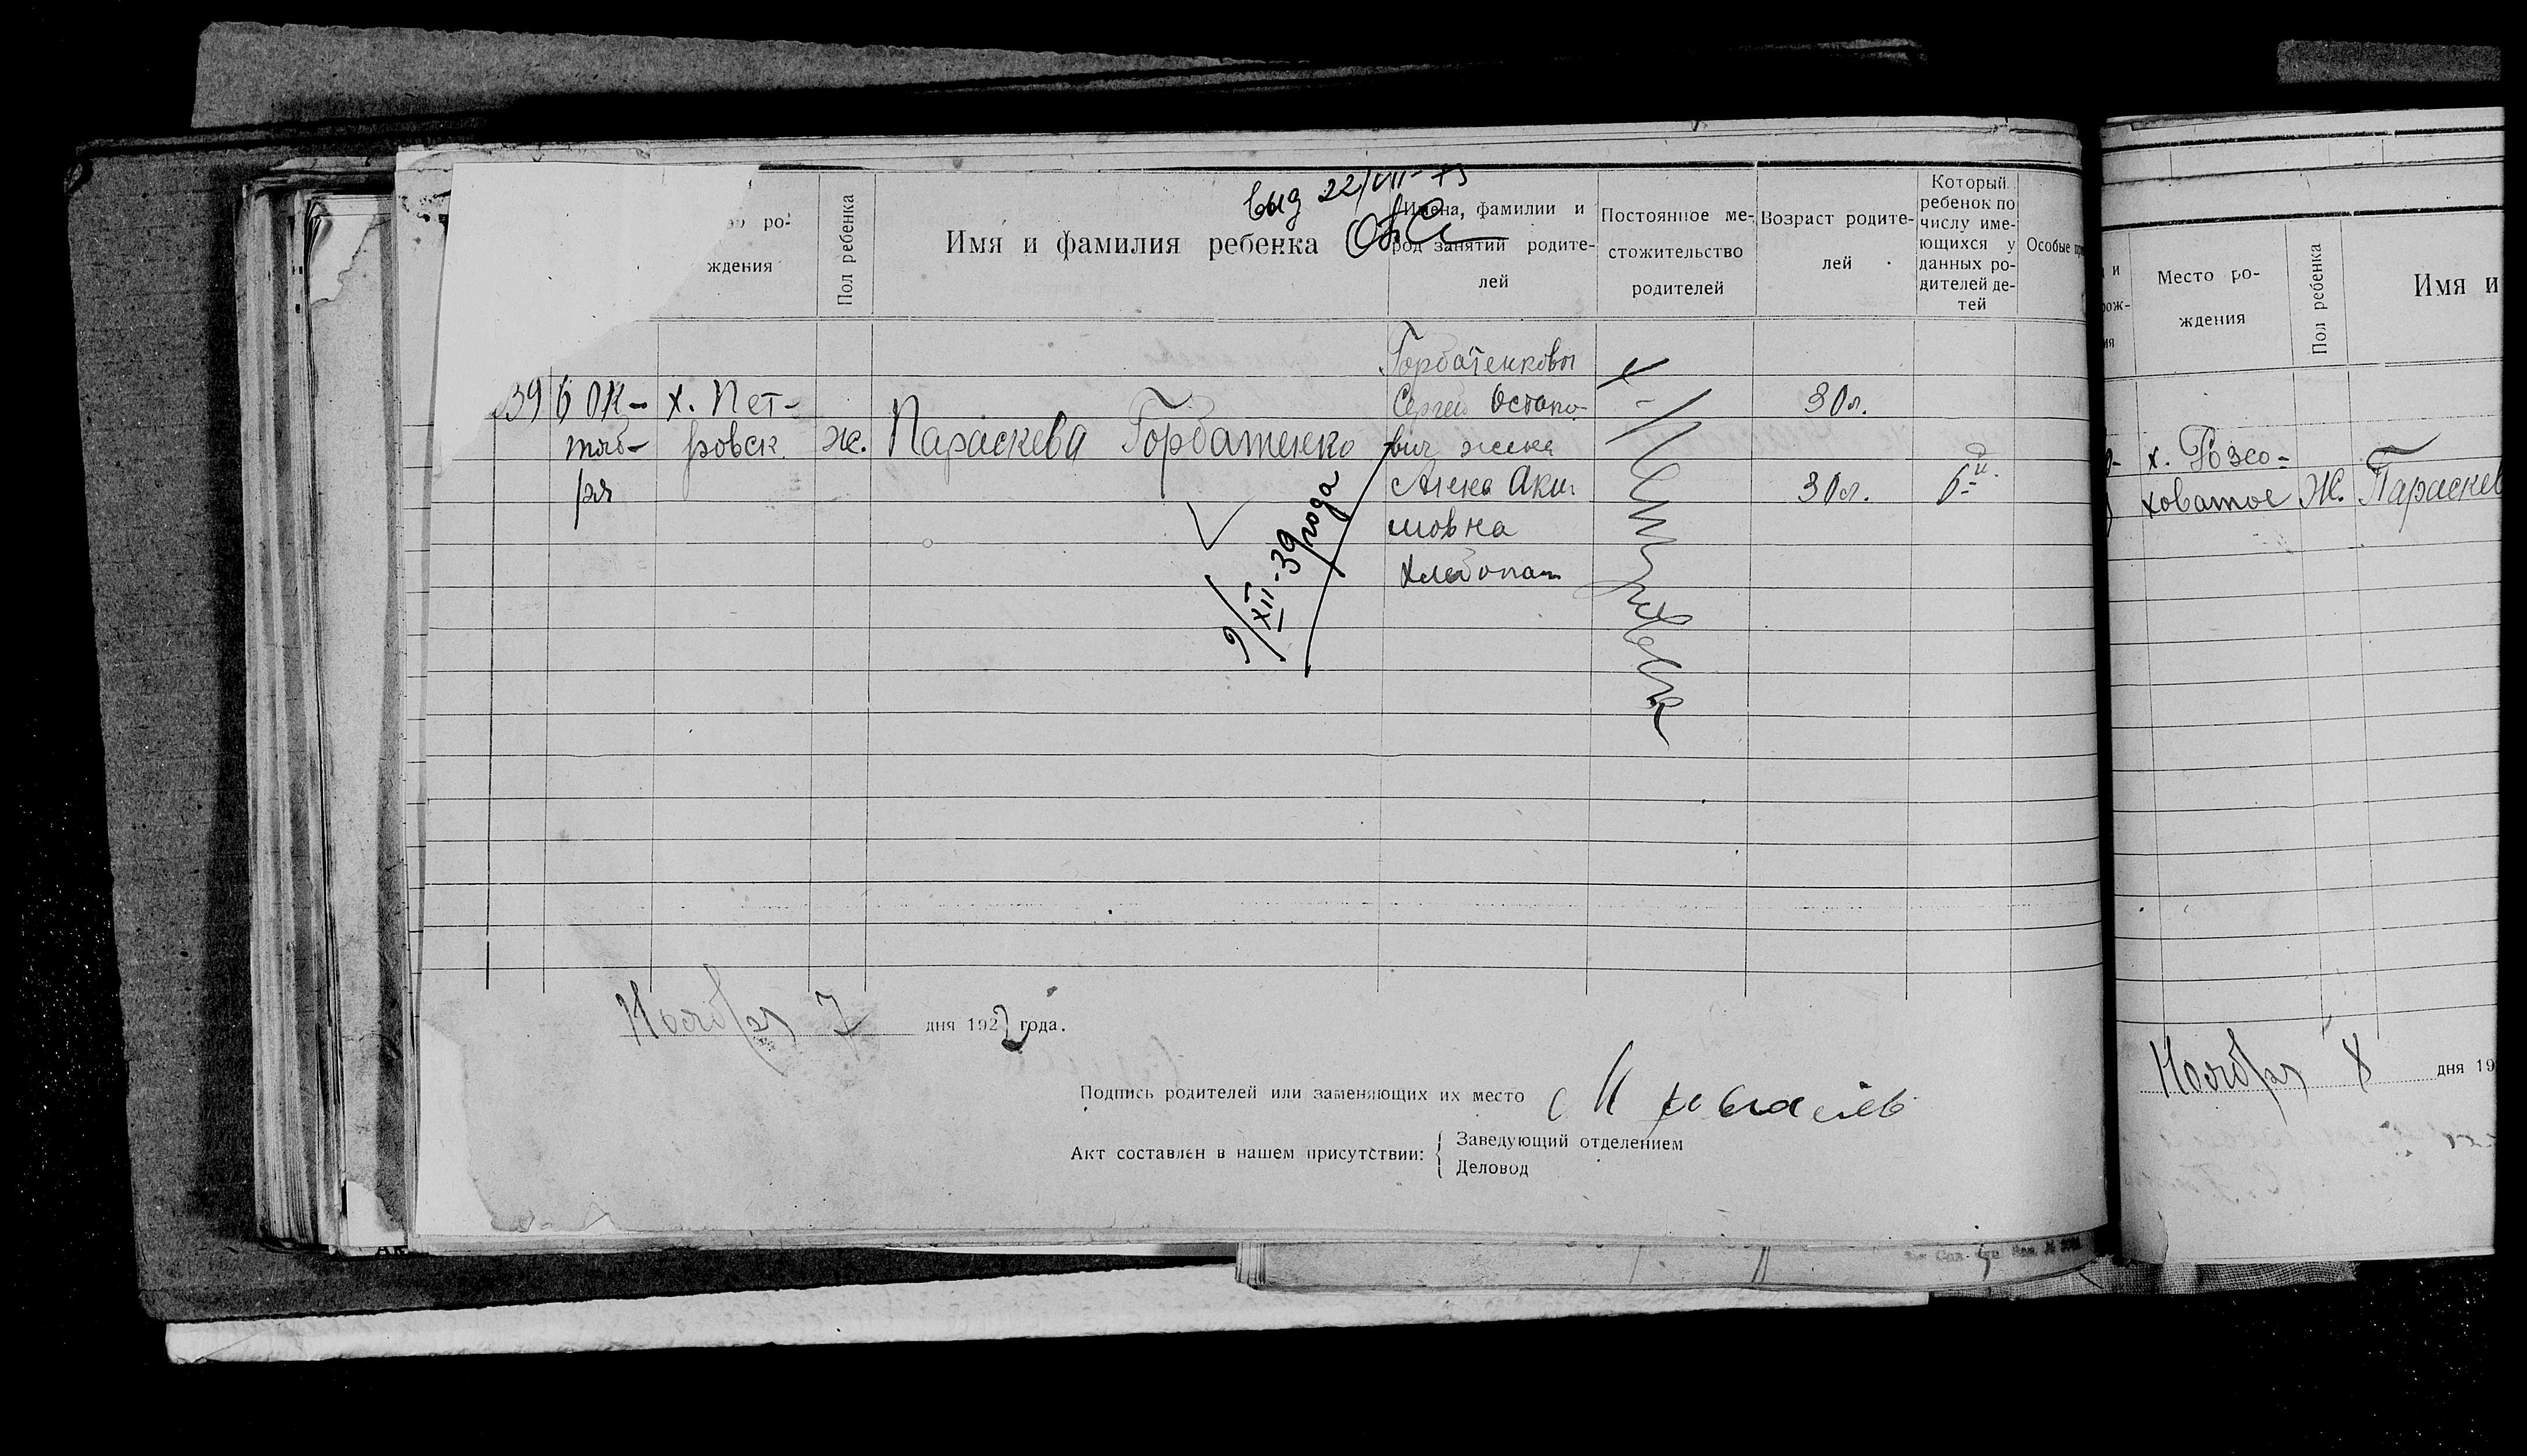 выд 22/VII-73
ро-
ждения
Пол ребенка
Имя и фамилия ребенка
Имена, фамилии и
род занятий родите-
лей
Постоянное ме-
стожительство
родителей
Возраст родите-
лей
Который
ребенок по
числу име-
ющихся у
данных ро-
дителей де-
тей
Особые
39
6 Ок-
тяб-
ря
х. Пет-
ровск.
ж.
Параскева Горбатенко
Горбатенковы
Сергей Остапо-
вич жена
Аки-
мовна
Хлебопаш
х. Петровск
30 л.
30 л.
6й
9/XII-39 года
Ноября 7 дня 1922 года.
Подпись родителей или заменяющих их место
Акт составлен в нашем присутствии:
Заведующий отделением
Деловод
Место ро-
ждения
Пол ребенка
Имя и
х. Розсо-
ховатое
Ж.
Параскев
Ноября 8 дня 19